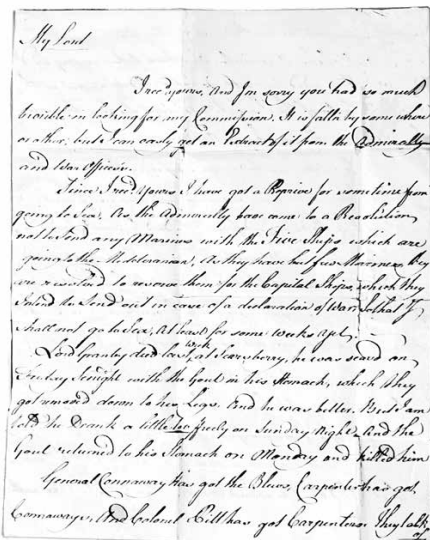 My Lord
I recd yours, And I'm sorry you had so much
trouble in looking for my Commission. It is falln by some where
or other, but I can easly get an Extract of it from the Admiralty
and War Office.
Since I recd yours I have got a Reprive for sometime from
going to Sea. As the Admiralty have come to a Resolution
not to Send any Marines with the Five Ships which are
going to the Mediteranian, As they have but few Marines they
are resolved to reserve them for the Capital Ships, which they
Intend to Send out in case of a declaration of War. So that I
shall not go to Sea, At least for some weeks yet,
Lord Granby died last week at Scarsberry, he was seasd on
Friday Senight with the Gout in his Stomack, which they
got removed down to his Legs. And he was better. But I am
told he Drank a little too freely on Sunday Night, And the
Gout returned to his Stomach on Monday and killed him
General Connaway has got the Blues, Carpenter has got
Connaways, And Colonel Pitt has got Carpenters They talk
of